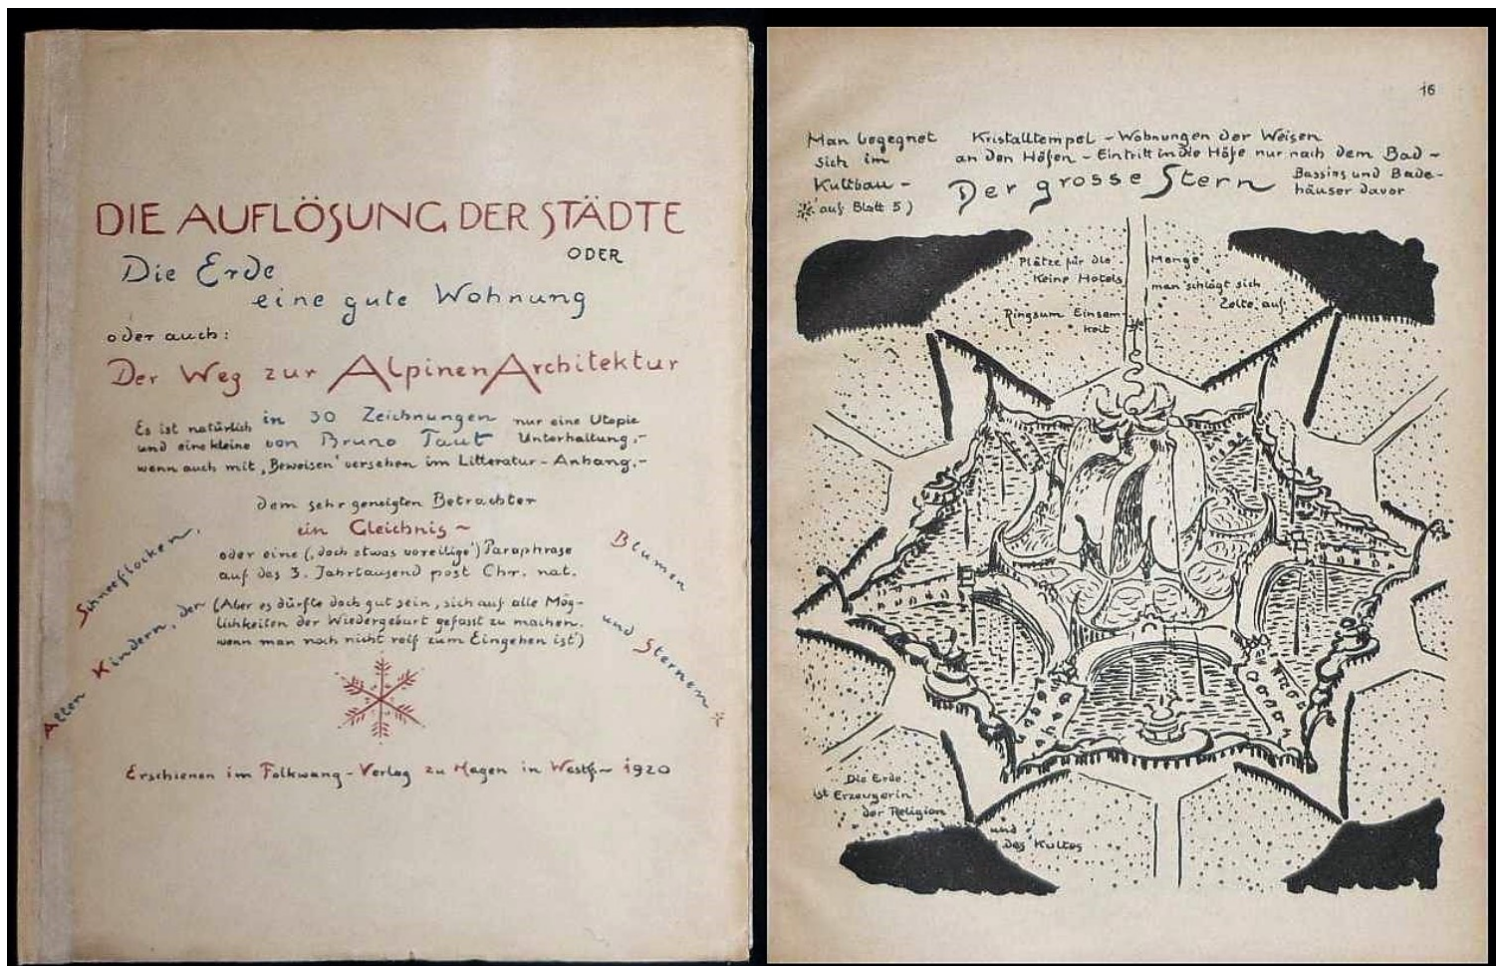 DIE AUFLÖSUNG DER STÄDTE
ODER
Die Erde
eine gute Wohnung
oder auch:
Der Weg zur Alpinen Architektur
Es ist natürlich in 30 Zeichnungen nur eine Utopie
und eine kleine von Bruno Taut Unterhaltung,-
wenn auch mit ‚Beweisen' versehen im Litteratur-Anhang,-
dem sehr geneigten Betrachter
ein Gleichnis ~
oder eine (‚doch etwas voreilige') Paraphrase
auf das 3. Jahrtausend post Chr. nat.
(Aber es dürfte doch gut sein, sich auf alle Mög-
lichkeiten der Wiedergeburt gefasst zu machen.
wenn man noch nicht reif zum Eingehen ist')
Allen Kindern, der
Schneeflocken,
Blumen
und Sternen
Erschienen im Folkwang-Verlag zu Hagen in Westf~ 1920
16
Man begegnet
sich im
Kultbau -
auf Blatt 5)
Kristalltempel - Wohnungen der Weisen
an den Höfen - Eintritt in die Höfe nur nach dem Bad -
Bassins und Bade-
häuser davor
Der grosse Stern
Plätze für die Menge
Keine Hotels man schlägt sich
Zelte auf
Ringsum Einsam-
keit
Die Erde
ist Erzeugerin
der Religion
und
des Kultes